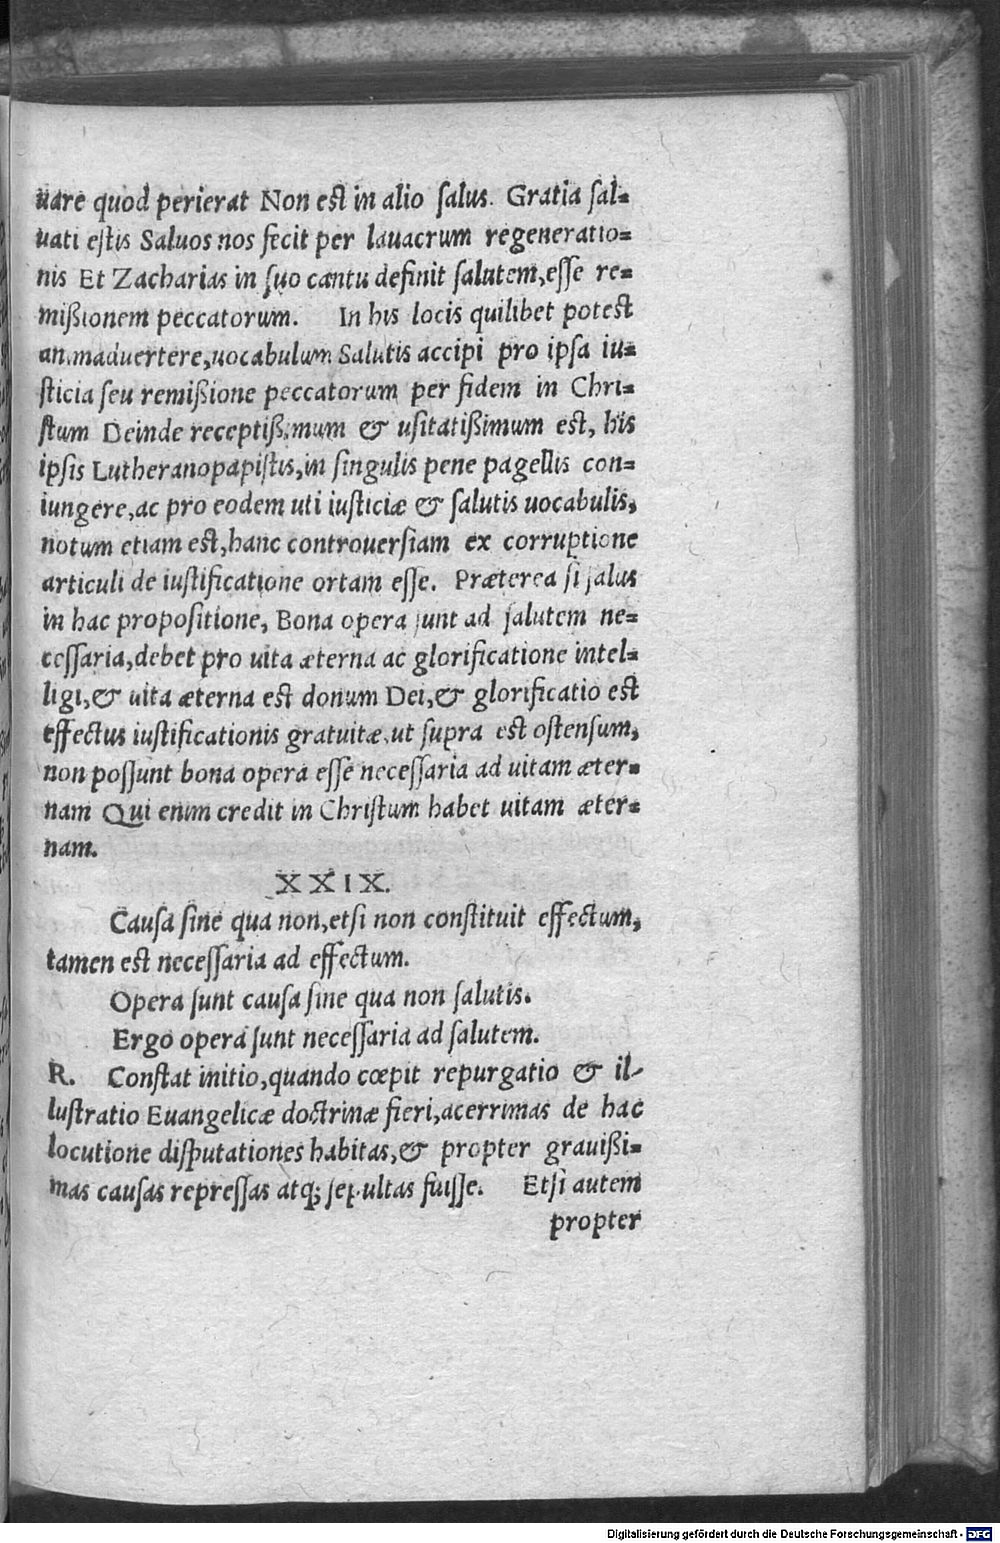 uare quod perierat Non est in alio ſalus. Gratia ſal-
uati eſtis Saluos nos fecit per lauacrum regeneratio-
nis Et Zacharias in ſuo cantu definit ſalutem,eſſe re-
mißionem peccatorum. In his locis quilibet potest
animaduertere,uocabulum Salutis accipi pro ipſa iu-
ſticia ſeu remißione peccatorum per fidem in Chri-
ſtum Deinde receptißimum & uſitatißimum est, his
ipſis Lutheranopapiſtis,in ſingulis pene pagellis con-
iungere,ac pro eodem uti iuſticiæ & ſalutis uocabulis,
notum etiam est,hanc controuerſiam ex corruptione
articuli de iuſtificatione ortam eſſe. Præterea ſi ſalus
in hac propoſitione, Bona opera ſunt ad ſalutem ne-
ceſſaria,debet pro uita æterna ac glorificatione intel-
ligi,& uita æterna est donum Dei,& glorificatio est
effectus iuſtificationis gratuitæ,ut ſupra est oſtenſum,
non poſſunt bona opera eſſe neceſſaria ad uitam æter-
nam Qui enim credit in Chriſtum habet uitam æter-
nam.
XXIX.
Cauſa ſine qua non,etſi non conſtituit effectum,
tamen est neceſſaria ad effectum.
Opera ſunt cauſa ſine qua non ſalutis.
Ergo opera ſunt neceſſaria ad ſalutem.
R. Conſtat initio,quando cœpit repurgatio & il-
luſtratio Euangelicæ doctrinæ fieri,acerrimas de hac
locutione diſputationes habitas,& propter grauißi-
mas cauſas repreſſas atq; ſepultas fuiſſe. Etſi autem
propter
Digitalisierung gefördert durch die Deutsche Forschungsgemeinschaft - DFG